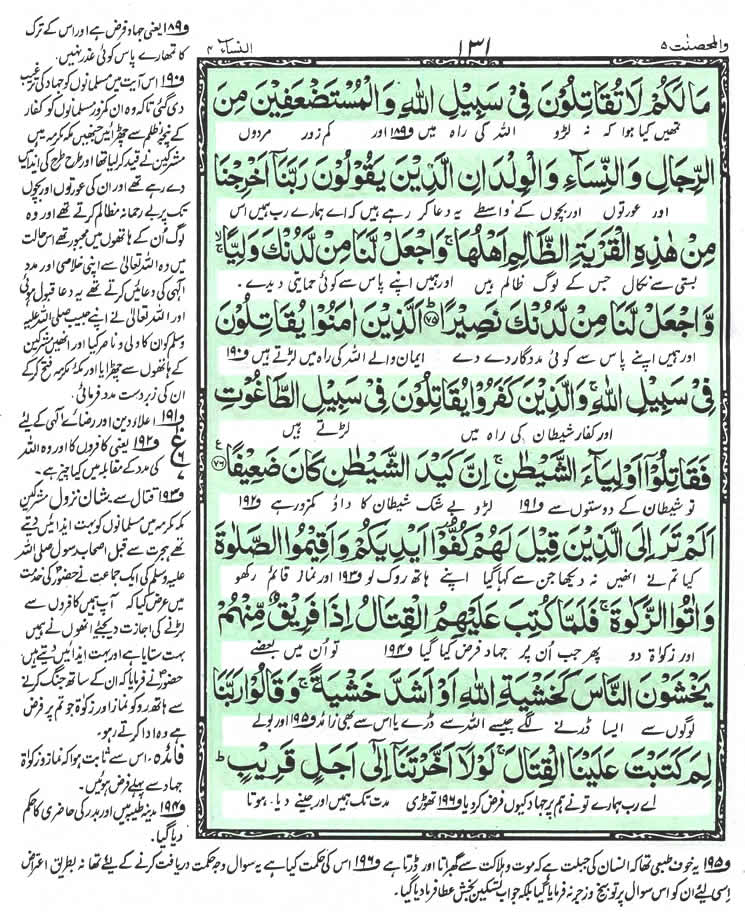 والمحصنت ٥
١٣١
النساء ٤
مَا لَكُمْ لَا تُقَاتِلُوْنَ فِىْ سَبِيْلِ اللّٰهِ وَالْمُسْتَضْعَفِيْنَ مِنَ
تمھیں کیا ہوا کہ نہ لڑو اللہ کی راہ میں و۱۸۹ اور کمزور مردوں
الرِّجَالِ وَالنِّسَآءِ وَالْوِلْدَانِ الَّذِيْنَ يَقُوْلُوْنَ رَبَّنَآ اَخْرِجْنَا
اور عورتوں اور بچوں کے واسطے یہ دعا کر رہے ہیں کہ اے ہمارے رب ہمیں اس
مِنْ هٰذِهِ الْقَرْيَةِ الظَّالِمِ اَهْلُهَا ۚ وَاجْعَلْ لَّنَا مِنْ لَّدُنْكَ وَلِيًّا ۙ
بستی سے نکال جس کے لوگ ظالم ہیں اور ہمیں اپنے پاس سے کوئی حمایتی دیدے۔
وَّاجْعَلْ لَّنَا مِنْ لَّدُنْكَ نَصِيْرًا ﴿۷۵﴾ اَلَّذِيْنَ اٰمَنُوْا يُقَاتِلُوْنَ
اور ہمیں اپنے پاس سے کوئی مددگار دے دے ایمان والے اللہ کی راہ میں لڑتے ہیں و۱۹۰
فِىْ سَبِيْلِ اللّٰهِ ۚ وَالَّذِيْنَ كَفَرُوْا يُقَاتِلُوْنَ فِىْ سَبِيْلِ الطَّاغُوْتِ
اور کفار شیطان کی راہ میں لڑتے ہیں
فَقَاتِلُوْٓا اَوْلِيَآءَ الشَّيْطٰنِ ۚ اِنَّ كَيْدَ الشَّيْطٰنِ كَانَ ضَعِيْفًا ﴿۷۶﴾
تو شیطان کے دوستوں سے و۱۹۱ لڑو بے شک شیطان کا داؤ کمزور ہے و۱۹۲
اَلَمْ تَرَ اِلَى الَّذِيْنَ قِيْلَ لَهُمْ كُفُّوْٓا اَيْدِيَكُمْ وَاَقِيْمُوا الصَّلٰوةَ
کیا تم نے انھیں نہ دیکھا جن سے کہا گیا اپنے ہاتھ روک لو و۱۹۳ اور نماز قائم رکھو
وَاٰتُوا الزَّكٰوةَ ۚ فَلَمَّا كُتِبَ عَلَيْهِمُ الْقِتَالُ اِذَا فَرِيْقٌ مِّنْهُمْ
اور زکوٰۃ دو پھر جب اُن پر جہاد فرض کیا گیا و۱۹۴ تو اُن میں بعضے
يَخْشَوْنَ النَّاسَ كَخَشْيَةِ اللّٰهِ اَوْ اَشَدَّ خَشْيَةً ۚ وَقَالُوْا رَبَّنَا
لوگوں سے ایسا ڈرنے لگے جیسے اللہ سے ڈرے یا اس سے بھی زائد و۱۹۵ اور بولے
لِمَ كَتَبْتَ عَلَيْنَا الْقِتَالَ ۚ لَوْلَآ اَخَّرْتَنَآ اِلٰٓى اَجَلٍ قَرِيْبٍ ؕ
اے رب ہمارے تو نے ہم پر جہاد کیوں فرض کردیا و۱۹۶ تھوڑی مدت تک ہمیں اور جینے دیا ہوتا
و۱۸۹ یعنی جہاد فرض ہے اور اس کے ترک
کا تمھارے پاس کوئی عذر نہیں۔
و۱۹۰ اس آیت میں مسلمانوں کو جہاد کی ترغیب
دی گئی تاکہ وہ ان کمزور مسلمانوں کو کفار
کے پنجۂ ظلم سے چھڑائیں جنھیں مکہ مکرمہ میں
مشرکین نے قید کرلیا تھا اور طرح طرح کی ایذائیں
دے رہے تھے اور ان کی عورتوں اور بچوں
تک پر بے رحمانہ مظالم کرتے تھے اور وہ
لوگ اُن کے ہاتھوں میں مجبور تھے اس حالت
میں وہ اللہ تعالیٰ سے اپنی خلاصی اور مدد
الٰہی کی دعائیں کرتے تھے یہ دعا قبول ہوئی
اور اللہ تعالیٰ نے اپنے حبیب صلی اللہ علیہ
وسلم کو ان کا ولی و ناصر کیا اور انھیں مشرکین
کے ہاتھوں سے چھڑایا اور مکہ مکرمہ فتح کرکے
ان کی زبردست مدد فرمائی۔
و۱۹۱ اعلاء دین اور رضائے الٰہی کے لئے
و۱۹۲ یعنی کافروں کا اور وہ اللہ
کی مدد کے مقابلہ میں کیا چیز ہے۔
ع
۶
۷
و۱۹۳ قتال سے شان نزول مشرکین
مکہ مکرمہ میں مسلمانوں کو بہت ایذائیں دیتے
تھے ہجرت سے قبل اصحاب رسول صلی اللہ
علیہ وسلم کی ایک جماعت نے حضور کی خدمت
میں عرض کیا کہ آپ ہمیں کافروں سے
لڑنے کی اجازت دیجئے انھوں نے ہمیں
بہت ستایا ہے اور بہت ایذائیں دیتے ہیں
حضور نے فرمایا کہ ان کے ساتھ جنگ کرنے
سے ہاتھ روکو نماز اور زکوٰۃ جو تم پر فرض
ہے وہ ادا کرتے رہو۔
فائدہ۔ اس سے ثابت ہوا کہ نماز و زکوٰۃ
جہاد سے پہلے فرض ہوئیں۔
و۱۹۴ مدینہ طیبہ میں اور بدر کی حاضری کا حکم
دیا گیا۔
و۱۹۵ یہ خوف طبعی تھا کہ انسان کی جبلت ہے کہ موت و ہلاکت سے گھبراتا اور ڈرتا ہے و۱۹۶ اس کی حکمت کیا ہے یہ سوال وجہ حکمت دریافت کرنے کے لئے تھا نہ بطریق اعتراض
اسی لئے ان کو اس سوال پر توبیخ و زجر نہ فرمایا گیا بلکہ جواب تسکین بخش عطا فرما دیا گیا۔